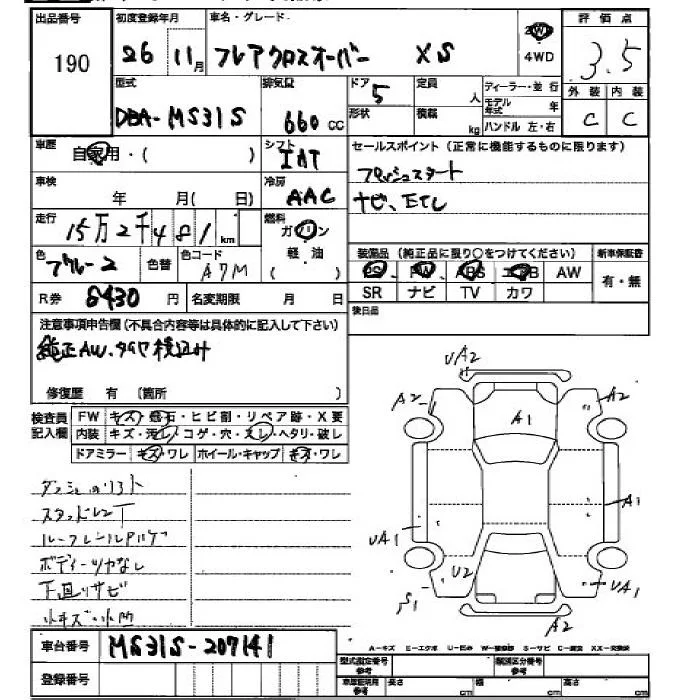 出品番号 初度登録年月 車名・グレード 評価点
190 26 11月 フレアクロスオーバー XS 2WD 4WD 3.5
型式 排気量 ドア 5 定員 人 ディーラー・並 行 外装 内装
DBA-MS31S 660cc 形状 積載 kg モデル年式 年 C C
ハンドル 左・右
車歴 自家用・( ) シフト IAT セールスポイント(正常に機能するものに限ります)
プッシュスタート
車検 年 月( 日) 冷房 AAC ナビ、ETC
走行 15万2千481km 燃料 ガソリン 軽油 ( )
装備品(純正品に限り○をつけてください) 新車保証書
色 ブルー2 色替 色コード A7M PS PW ABS エアB AW 有・無
R券 8430円 名変期限 月 日 SR ナビ TV カワ
注意事項申告欄(不具合内容等は具体的に記入して下さい) 後日品
純正AW、タイヤ積込み
修復歴 有 (箇所 )
検査員記入欄 FW キズ・飛石・ヒビ割・リペア跡・X要
内装 キズ・汚レ・コゲ・穴・スレ・ヘタリ・破レ
ドアミラー キズ・ワレ ホイール・キャップ キズ・ワレ
UA2
A2 A2
A1
A1
UA1
U2 UA1
S1
A2
ボディーツヤなし
下廻りサビ
車台番号 MS31S-207141
A-キズ E-エクボ U-凹み S-サビ
登録番号 型式指定番号 参考 類別区分番号 参考
長さ cm 幅 cm 高さ cm